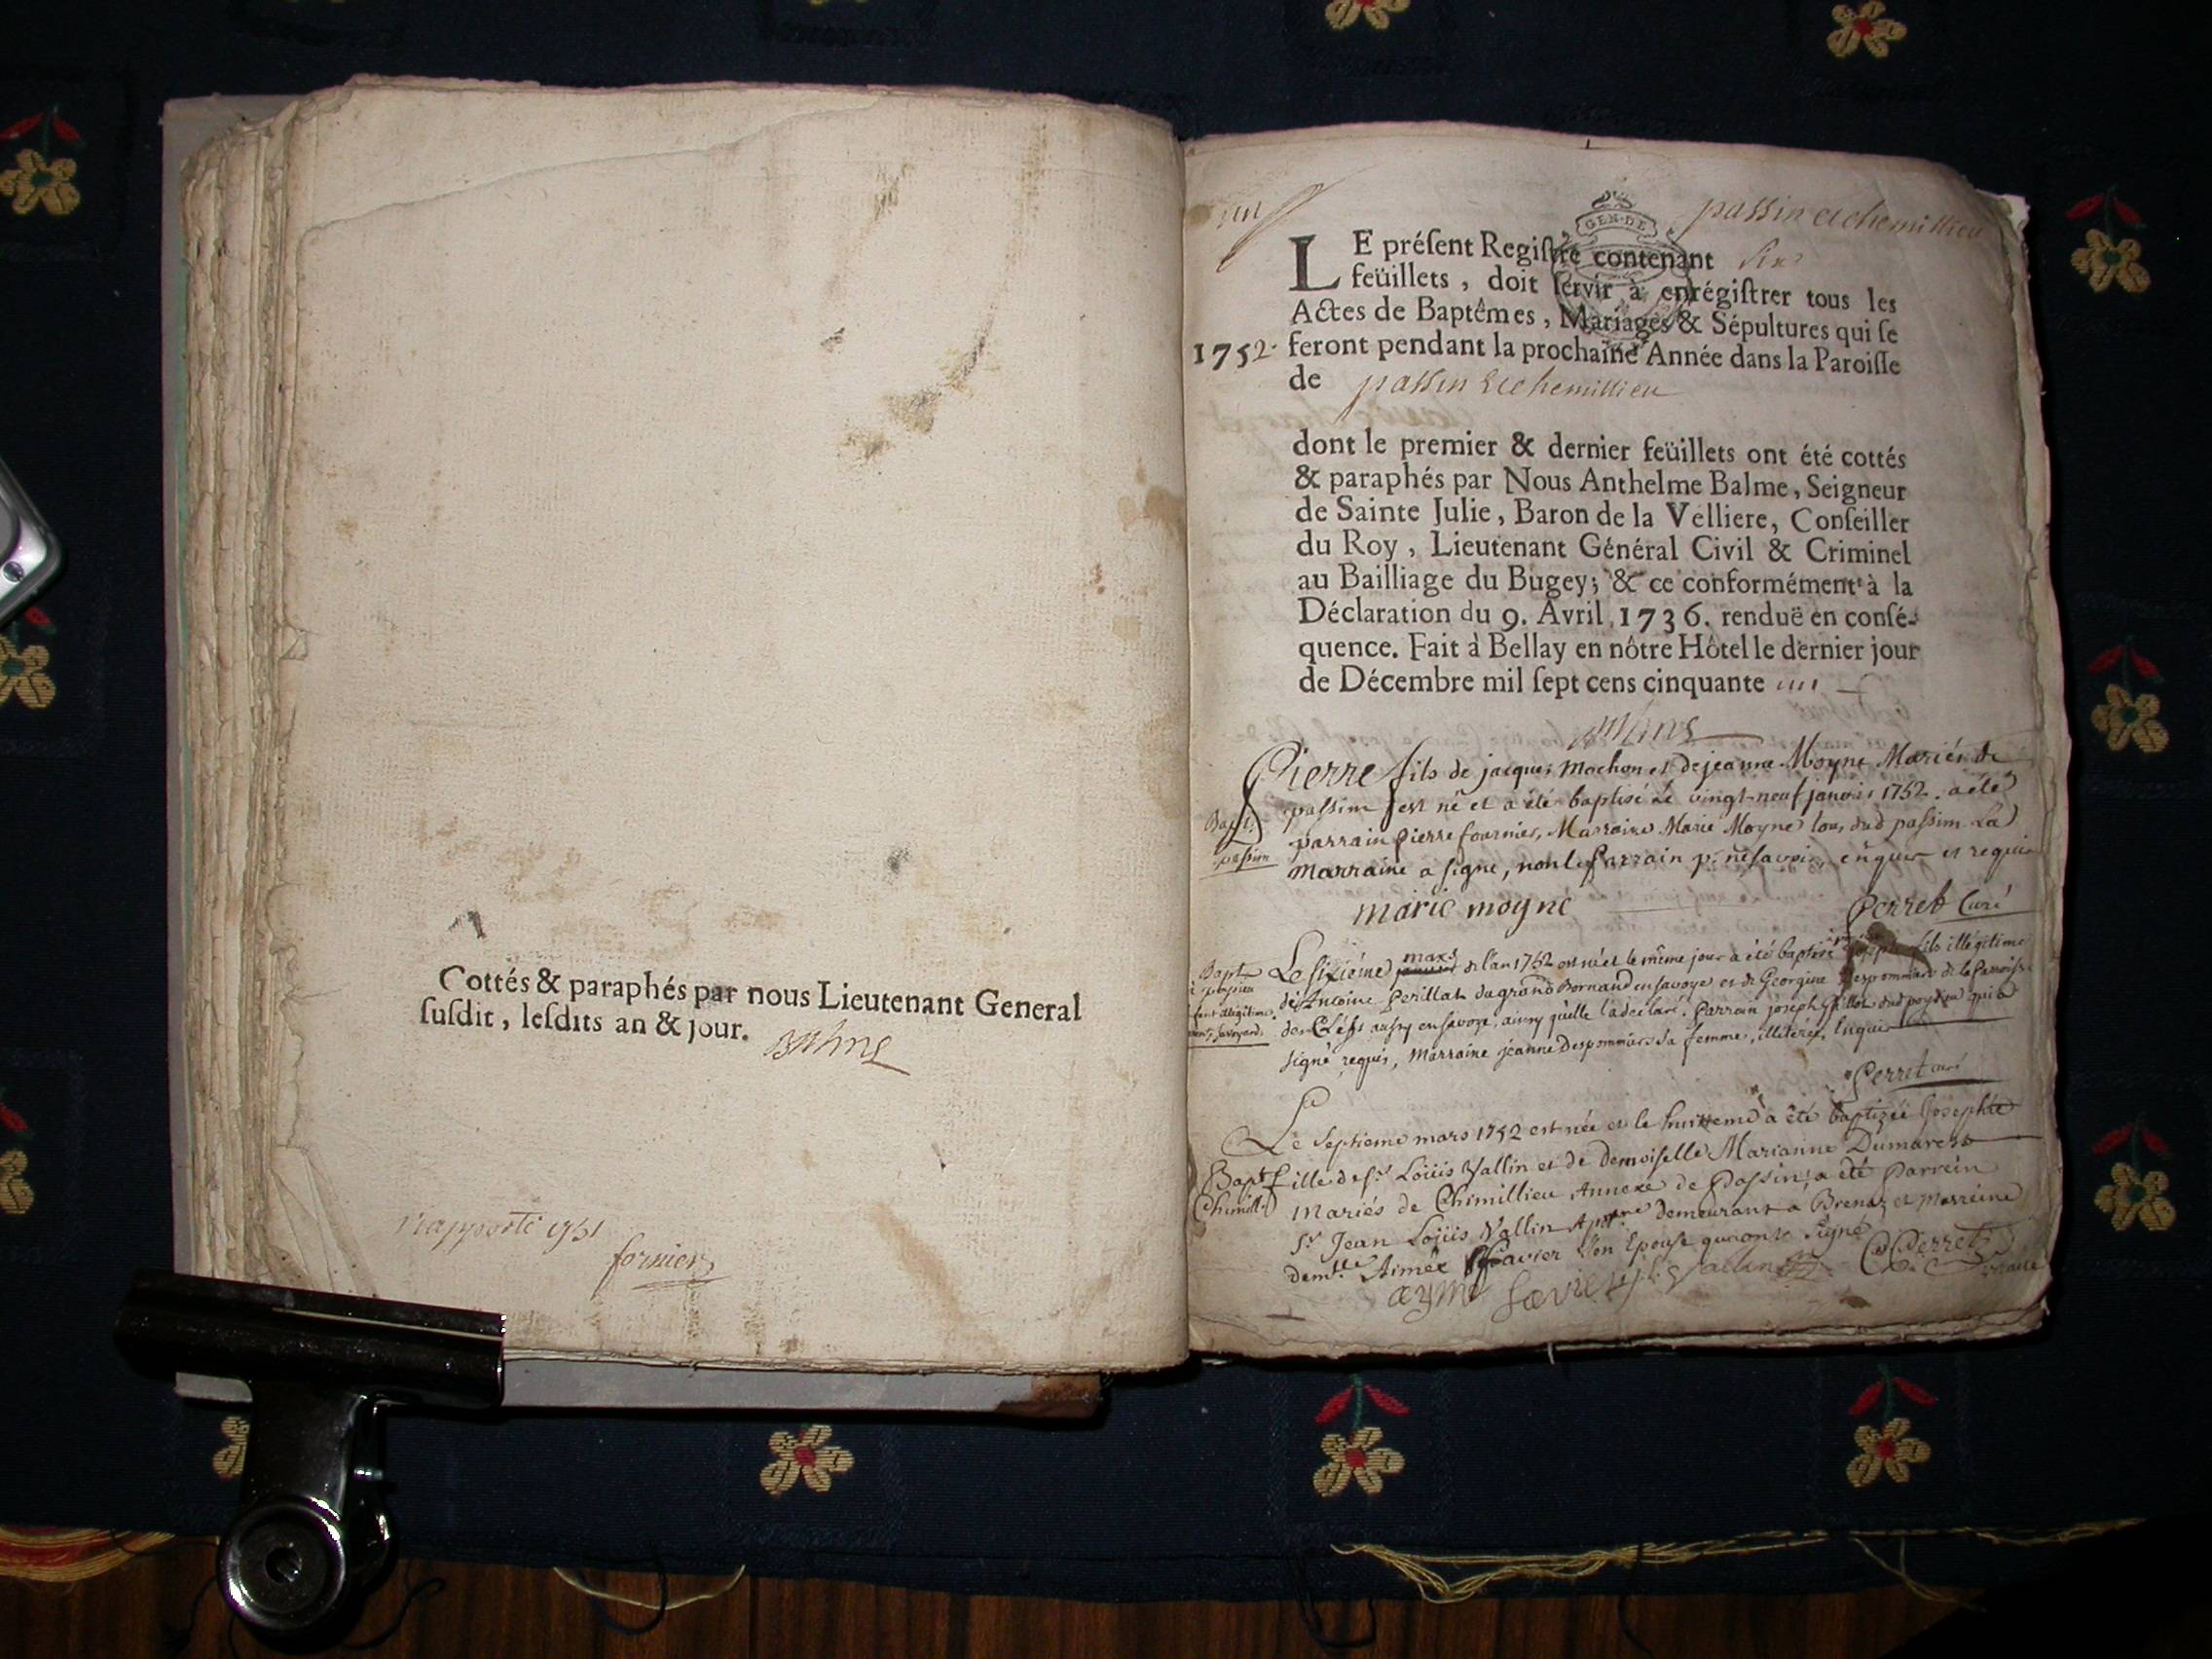 Cottés & paraphés par nous Lieutenant General
ſuſdit, leſdits an & jour.
Balme
rapporté 1751
fornier
un
passin et chemillieu
GEN·DE
LE préſent Regiſtre contenant six
feüillets, doit ſervir à enrégiſtrer tous les
Actes de Baptêmes, Mariages & Sépultures qui ſe
1752. feront pendant la prochaine Année dans la Paroiſſe
de passin & chemillieu
dont le premier & dernier feüillets ont été cottés
& paraphés par Nous Anthelme Balme, Seigneur
de Sainte Julie, Baron de la Velliere, Conſeiller
du Roy, Lieutenant Général Civil & Criminel
au Bailliage du Bugey; & ce conformément à la
Déclaration du 9. Avril 1736. renduë en conſé-
quence. Fait à Bellay en nôtre Hôtel le dernier jour
de Décembre mil ſept cens cinquante un
Balme
Pierre fils de jacques Mochon et de jeanne Moyne Mariés de
passin est né et a été baptisé Le vingt-neuf janvier 1752. a été
Bapt. parrain pierre fournier, Marraine Marie Moyne tous dud passim La
passim marraine a signé, non le Parrain pr. ne savoir, enquis et requis
marie moyne Perret Curé
Bapt. Le sixiéme mars de l'an 1752 est né et le même jour a été baptisé joseph fils illégitime
de Antoine Perillat du grand Bornand en savoye et de Georgine Despommiers de la Parroisse
illégitime de Clefs aussy en savoye, ainsy qu'elle l'a déclaré. Parrain joseph qui a
savoyard signé requis, Marraine jeanne Despommiers sa femme, illiterés, Enquis
Perret curé
Le septieme mars 1752 est née et le huittieme a été baptizéé Josephte
Bapt. fille de sr. Loüis Vallin et de demoiselle Marianne Dumarest
Chimill. mariés de Chimillieu Annexe de Passin; a été Parrein
Sr. Jean Loüis Vallin demeurant a Brenaz et marreine
demlle. Aimée favier son Epouse qui ont Signé
aymé favier Vallin Perret vicaire